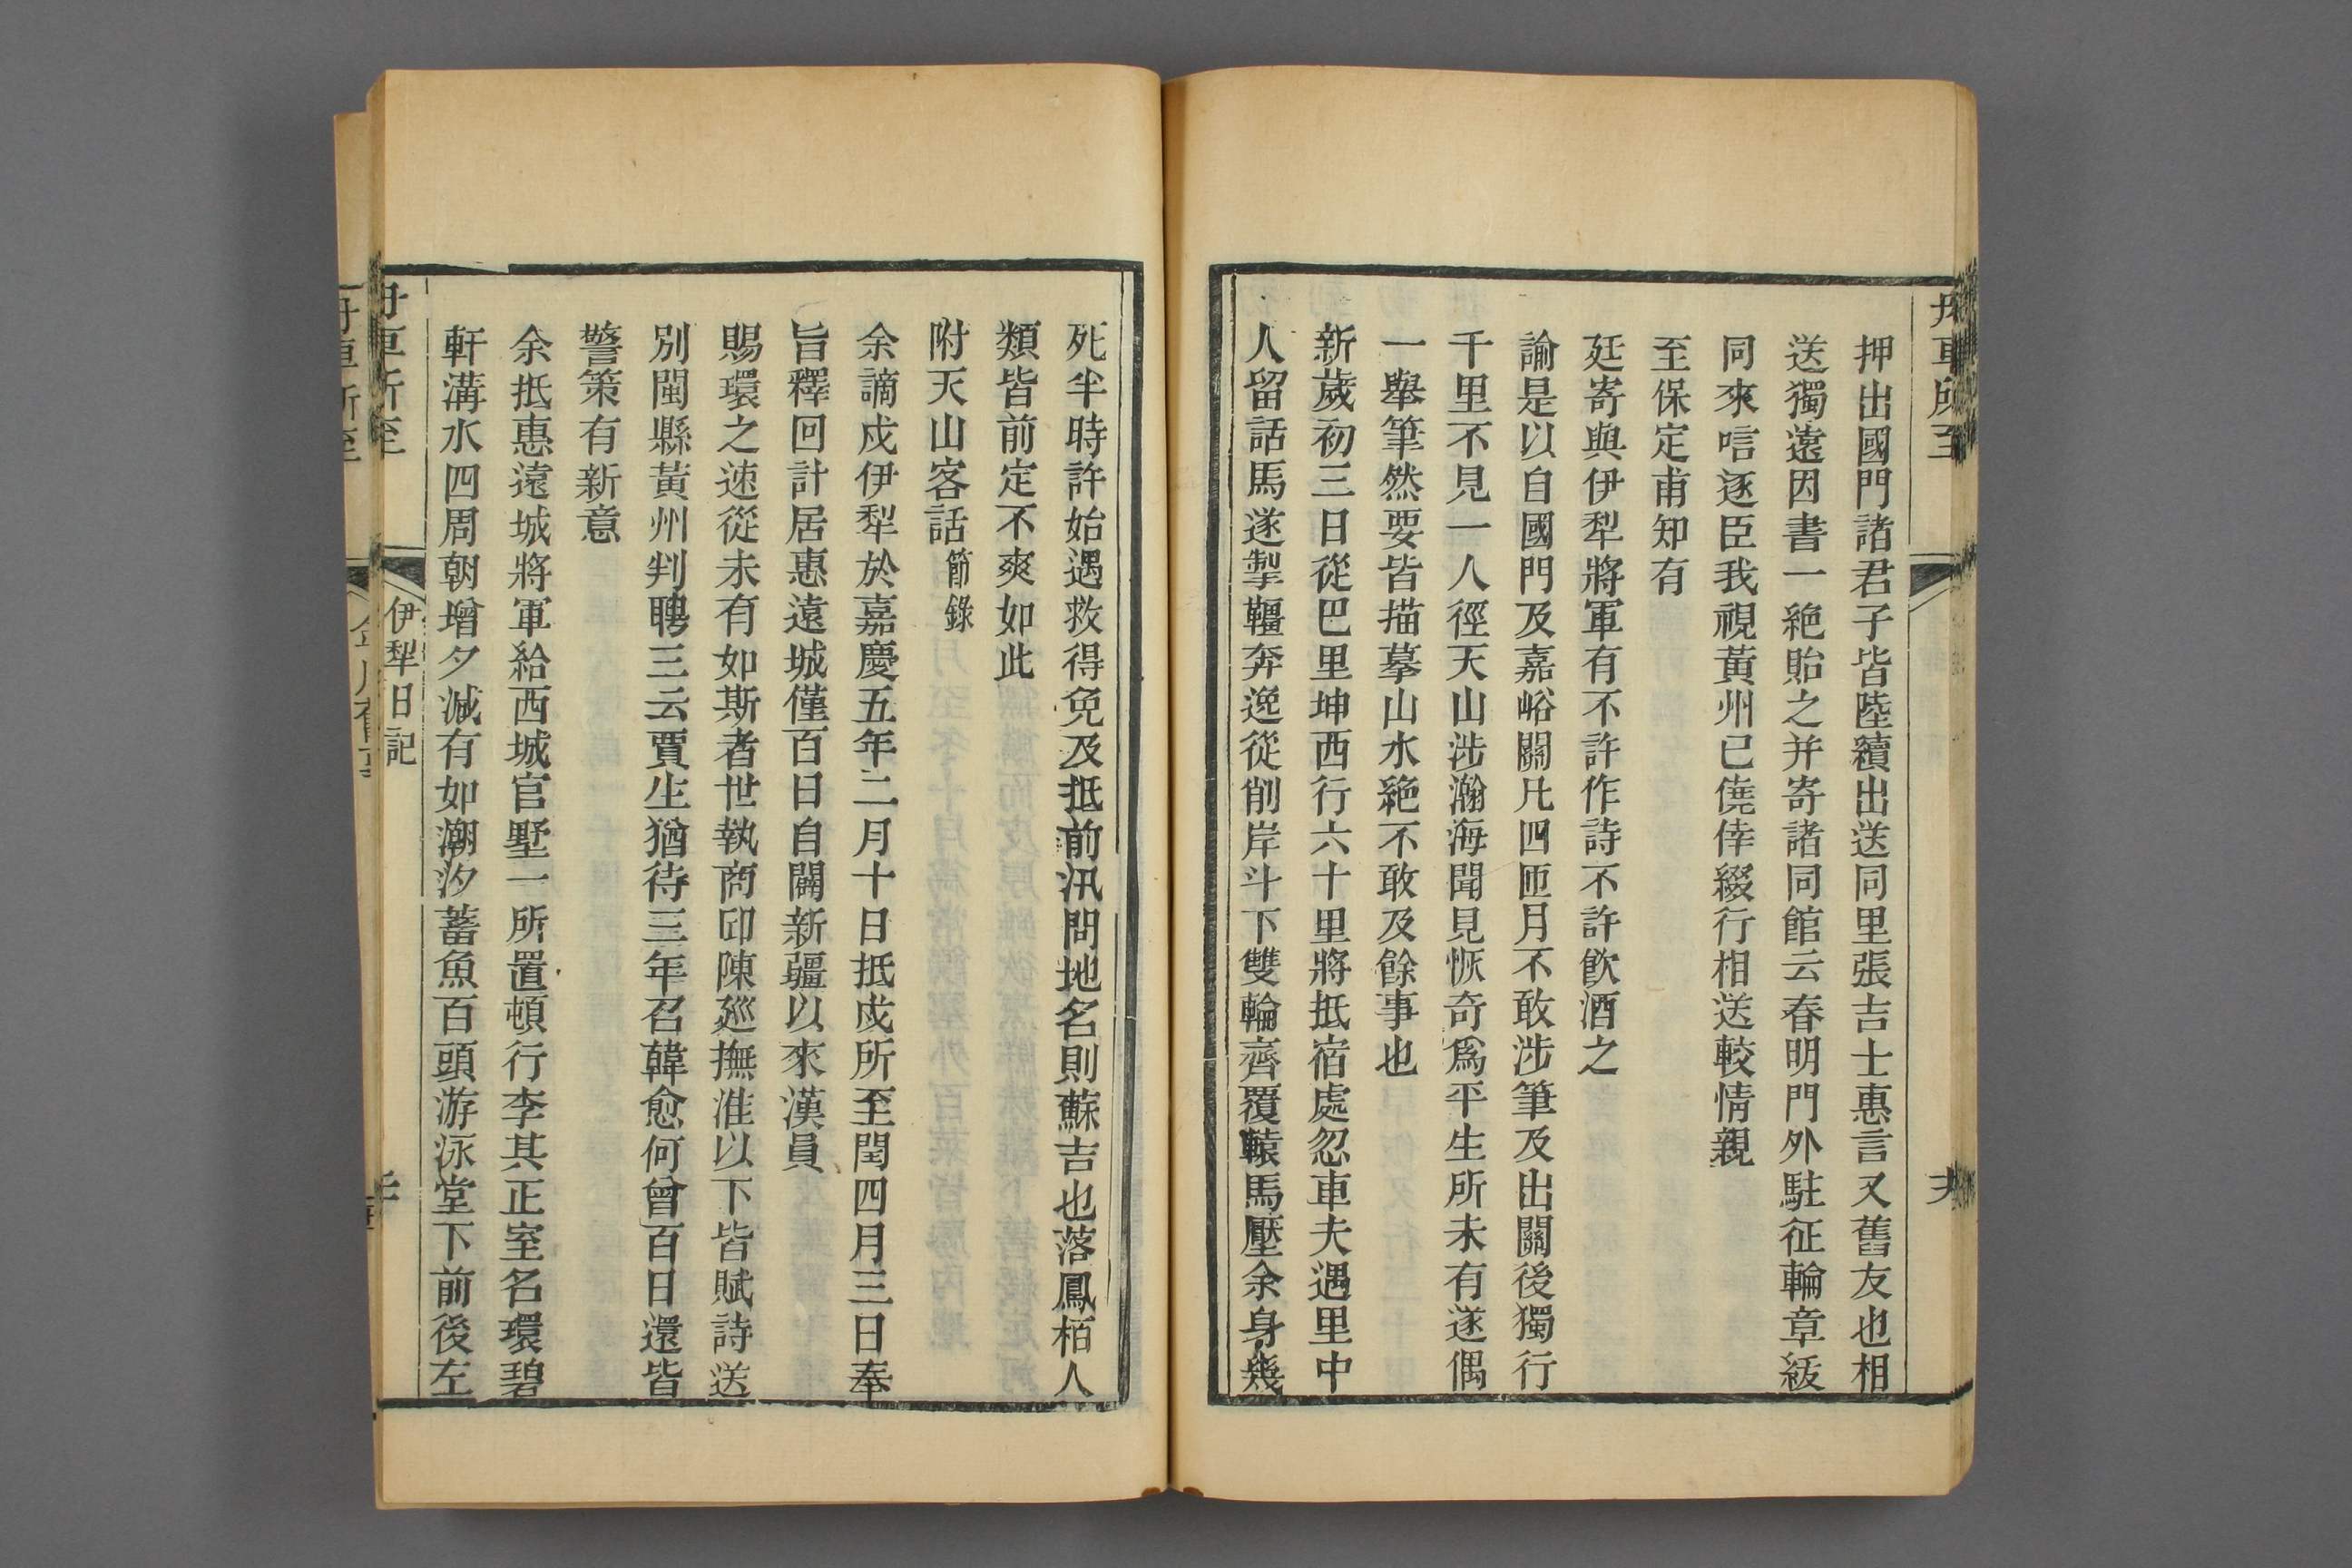 舟車所至
押出國門諸君子皆陸續出送同里張吉士惠言又舊友也相
送獨遠因書一絶貽之并寄諸同館云春明門外駐征輪章紱
同來唁逐臣我視黃州已僥倖綴行相送較情親
至保定甫知有
廷寄與伊犁將軍有不許作詩不許飲酒之
諭是以自國門及嘉峪關凡四匝月不敢涉筆及出關後獨行
千里不見一人徑天山涉瀚海聞見恢奇爲平生所未有遂偶
一舉筆然要皆描摹山水絶不敢及餘事也
新歲初三日從巴里坤西行六十里將抵宿處忽車夫遇里中
人留話馬遂掣韁奔逸從削岸斗下雙輪齊覆轅馬壓余身幾
死半時許始遇救得免及抵前汛問地名則蘇吉也落鳳栢人
類皆前定不爽如此
附天山客話節錄
余謫戍伊犁於嘉慶五年二月十日抵戍所至閏四月三日奉
旨釋回計居惠遠城僅百日自闢新疆以來漢員
賜環之速從未有如斯者世執商邱陳廵撫淮以下皆賦詩送
別閩縣黃州判聘三云賈生猶待三年召韓愈何曾百日還皆
警策有新意
余抵惠遠城將軍給西城官墅一所置頓行李其正室名環碧
軒溝水四周朝增夕減有如潮汐蓄魚百頭游泳堂下前後左
舟車所至
伊犁日記